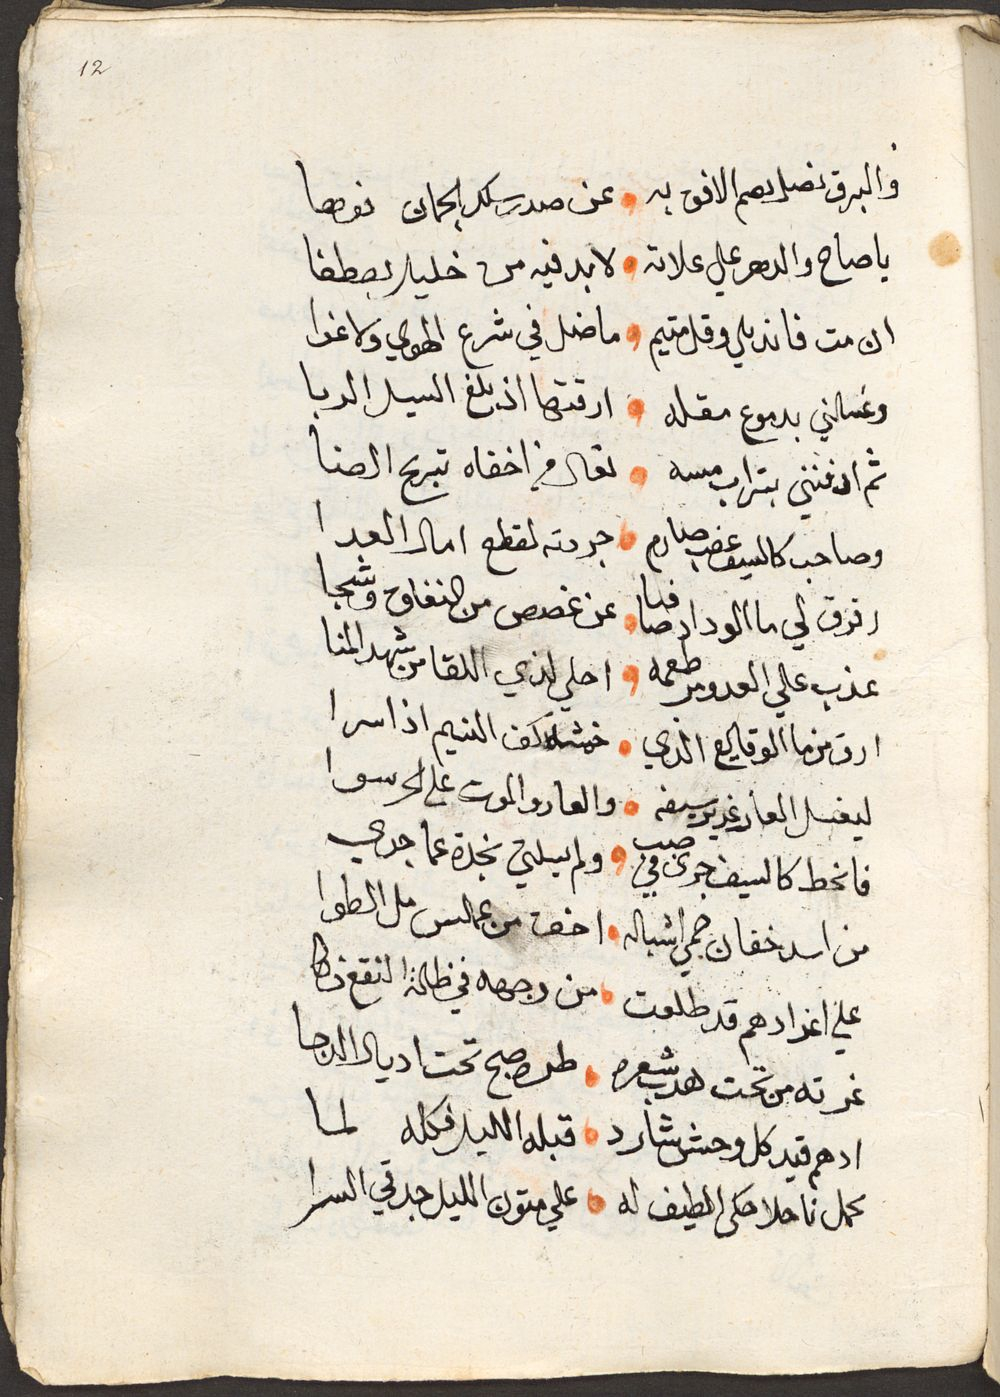 12
والبرق نصل يصم الافق به • عن صدر سلك الجمان نوها
يا صاح والدهر علي علاته • لا بد فيه من خليل يصطفا
ان مت فاندبلي وقل متيم • ما ضل في شرع الهوي ولا غوا
وغسلاني بدموع مقله • ارقتها اذ بلغ السيل الربا
ثم ادفنني بتراب مسه • نعال من اخفاه تبريح الضنا
وصاحب كالسيف عضب صارم • جردته لقطع امال العدا
رفرق لي ما الوداد فصا • عن غصص من النفاق وشجا
عذب علي العدو مر طعمه • احلي لذي اللقا من شهد المنا
ارق من ما الوقايع الذي • خمشه كف النسيم اذا سرا
ليغسل العار غدير سيفه • والعار والموت علي الحر سوا
فانحط كالسيف جري في صبب • ولم يسلني نجدة عما جري
من اسد خفان حمي اشباله • اخف من عملس مل الطوا
علي اغر ادهم قد طلعت • من وجهه في ظلمة النقع ذكا
غرته من تحت هدب شعره • طره صبح تحت اديال الدجا
ادهم قيد كل وحش شارد • قبله الليل فكله لما
يحمل ناحلا حكي الطيف له • علي متون الليل جد في السرا